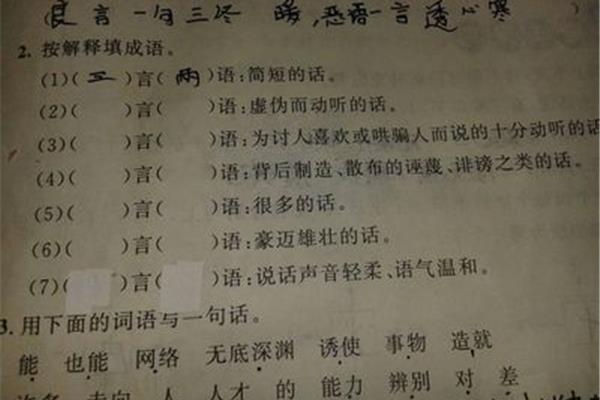 良言一句三冬暖,恶语一言透心寒
2. 按解释填成语。
(1)(三)言(两)语:简短的话。
(2)( )言( )语:虚伪而动听的话。
(3)( )言( )语:为讨人喜欢或哄骗人而说的十分动听的话
(4)( )言( )语:背后制造、散布的诬蔑、诽谤之类的话。
(5)( )言( )语:很多的话。
(6)( )言( )语:豪迈雄壮的话。
(7)( )言( )语:说话声音轻柔、语气温和。
3. 用下面的词语写一句话。
能 也能 网络 无底深渊 诱使 事物 造就
走向 人 人才 的 能力 辨别 对 差